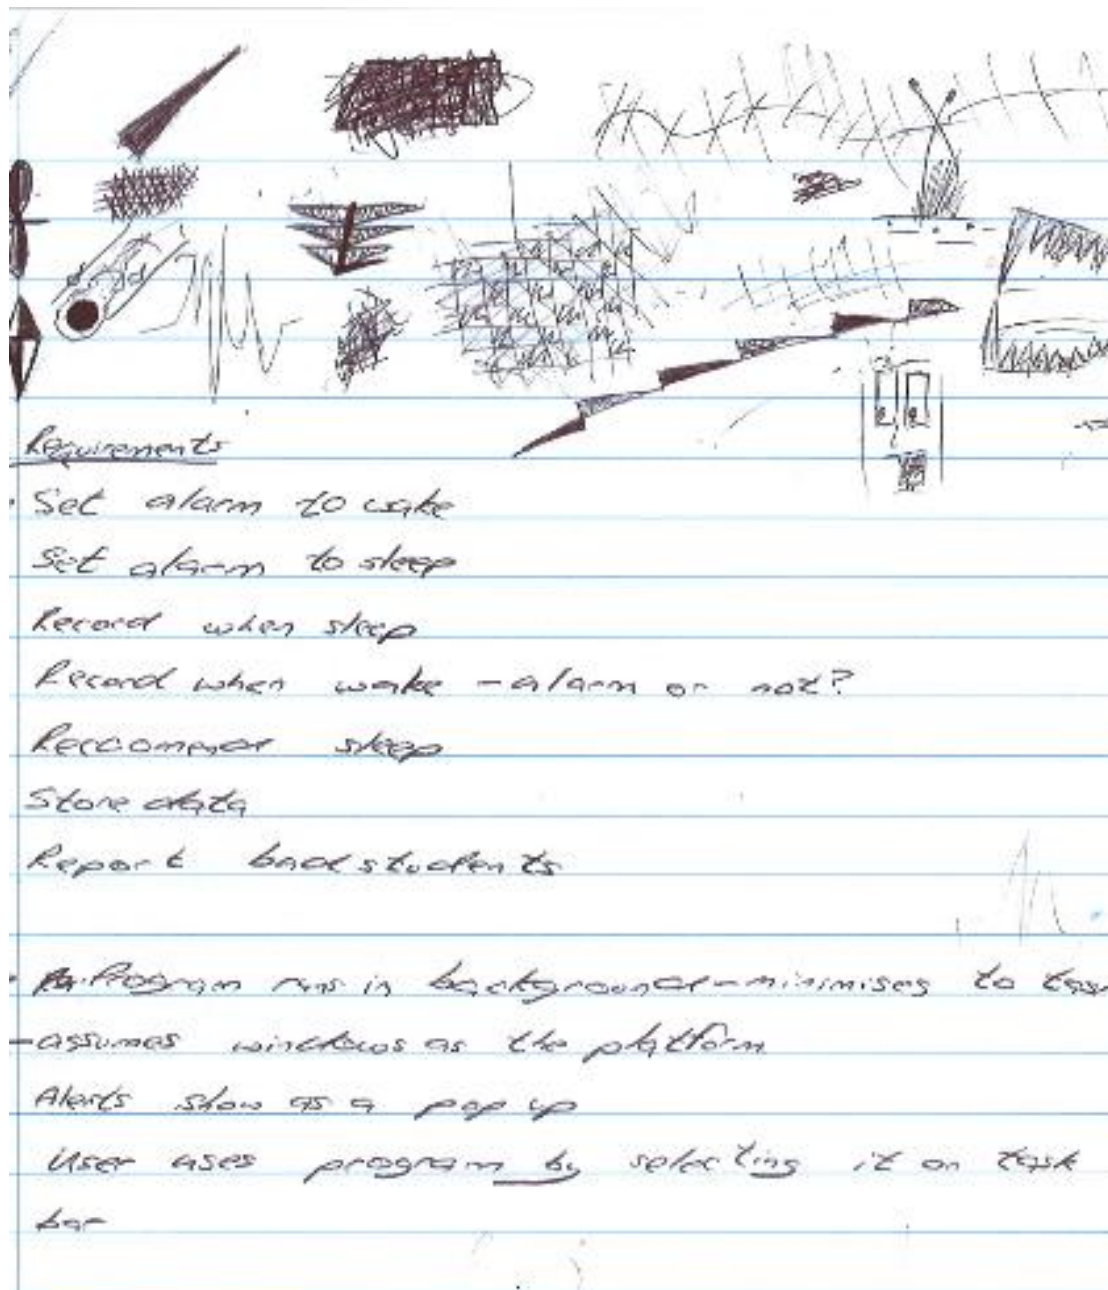 Requirements
· Set alarm to wake
Set alarm to sleep
Record when sleep
Record when wake - alarm or not?
Reccomend sleep
Store data
Report bad students
· Program runs in background - minimises to
- assumes windows as the platform
Alerts show as a pop up
User uses program by selecting it on task
bar